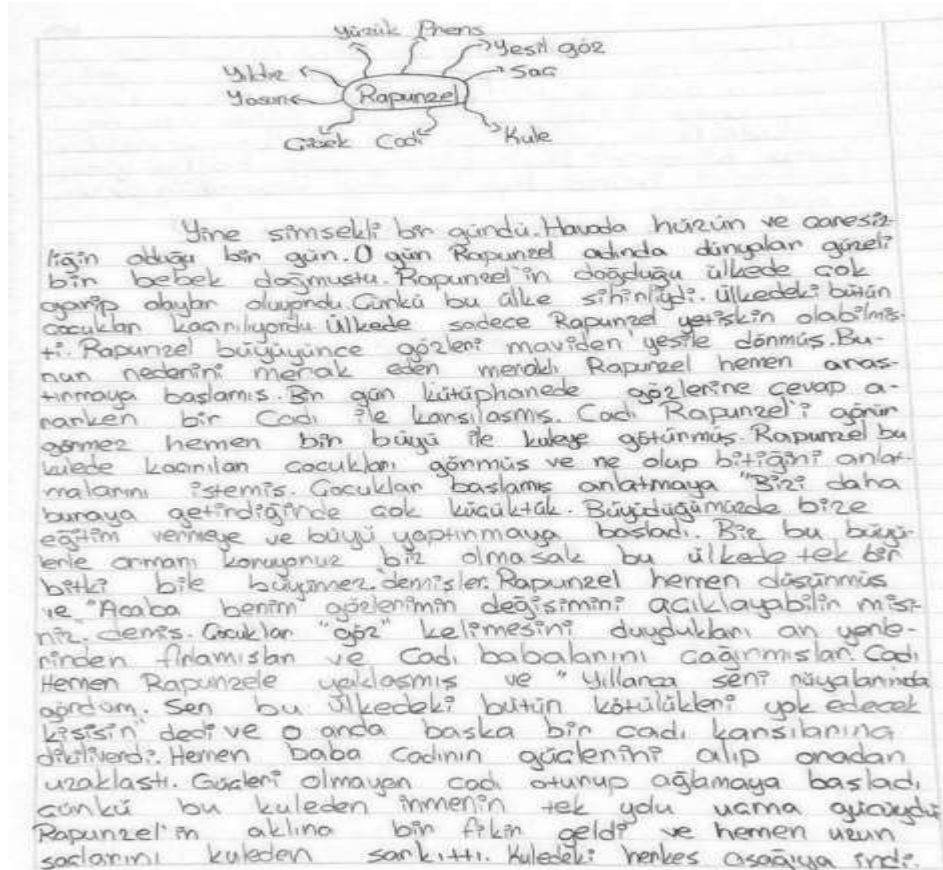 Yüzük Prens
Yeşil göz
Yıldız
Saç
Yosun
Rapunzel
Çiçek Cadı
Kule
Yine şimşekli bir gündü. Havada hüzün ve çaresiz-
liğin olduğu bir gün. O gün Rapunzel adında dünyalar güzeli
bir bebek doğmuştu. Rapunzel'in doğduğu ülkede çok
garip olaylar oluyordu. Çünkü bu ülke sihirliydi. Ülkedeki bütün
çocuklar kaçırılıyordu. Ülkede sadece Rapunzel yetişkin olabilmiş-
ti. Rapunzel büyüyünce gözleri maviden yeşile dönmüş. Bu-
nun nedenini merak eden meraklı Rapunzel hemen araş-
tırmaya başlamış. Bir gün kütüphanede gözlerine cevap a-
rarken bir Cadı ile karşılaşmış. Cadı Rapunzel'i görür
görmez hemen bir büyü ile kuleye götürmüş. Rapunzel bu
kulede kaçırılan çocukları görmüş ve ne olup bitiğini anlat-
malarını istemiş. Çocuklar başlamış anlatmaya "Bizi daha
buraya getirdiğinde çok küçüktük. Büyüdüğümüzde bize
eğitim vermeye ve büyü yaptırmaya başladı. Biz bu büyü-
lerle ormanı koruyoruz biz olmasak bu ülkede tek bir
bitki bile büyümez." demişler. Rapunzel hemen düşünmüş
ve "Acaba benim gözlerimin değişimini açıklayabilir misi-
niz." demiş. Çocuklar "göz" kelimesini duydukları an yerle-
rinden fırlamışlar ve Cadı babalarını çağırmışlar. Cadı
Hemen Rapunzele yaklaşmış ve "Yıllarca seni rüyalarımda
gördüm. Sen bu ülkedeki bütün kötülükleri yok edecek
kişisin" dedi ve o anda başka bir cadı karşılarına
dikiliverdi. Hemen baba cadının güçlerini alıp oradan
uzaklaştı. Güçleri olmayan cadı oturup ağlamaya başladı
çünkü bu kuleden inmenin tek yolu uçma gücüydü
Rapunzel'in aklına bir fikir geldi ve hemen uzun
saçlarını kuleden sarkıttı. Kuledeki herkes aşağıya indi.